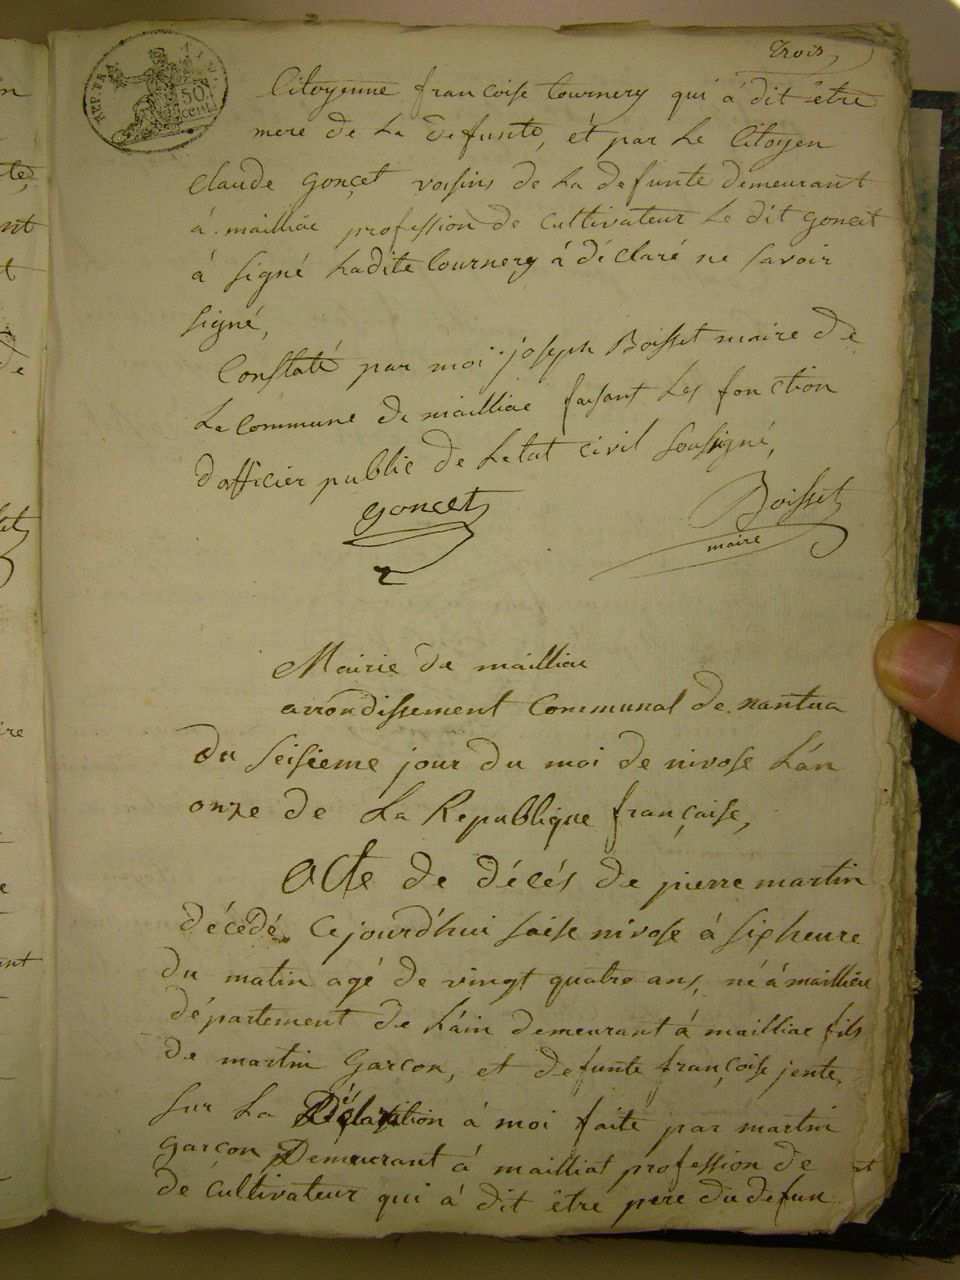 trois
REP. FRA
50
cent.
Citoyenne françoise tournery qui á dit être
mere de La defunte, ét par Le Citoyen
claude gonçet voisins de La defunte demeurant
á mailliac profession de cultivateur Le dit goncet
á signé Ladite tournery á déclaré ne savoir
signé,
Constaté par moi joseph Boisset maire de
La commune de mailliac faisant Les fonction
d'officier public de Letat civil soussigné,
goncet
Boisset
maire
Mairie de mailliac
arrondissement Communal de nantua
du seisieme jour du moi de nivose L'an
onze de La Republique française,
Acte de décés de pierre martin
décédé Cejourd'hui saise nivose á sixheure
du matin agé de vingt quatre ans, né á mailliac
département de L'ain demeurant á mailliac fils
de martin Garçon, et defunte françoise jente,
sur La Déclaration á moi faite par martin
garçon Demeurant á mailliat profession de
de cultivateur qui á dit être pere du defun